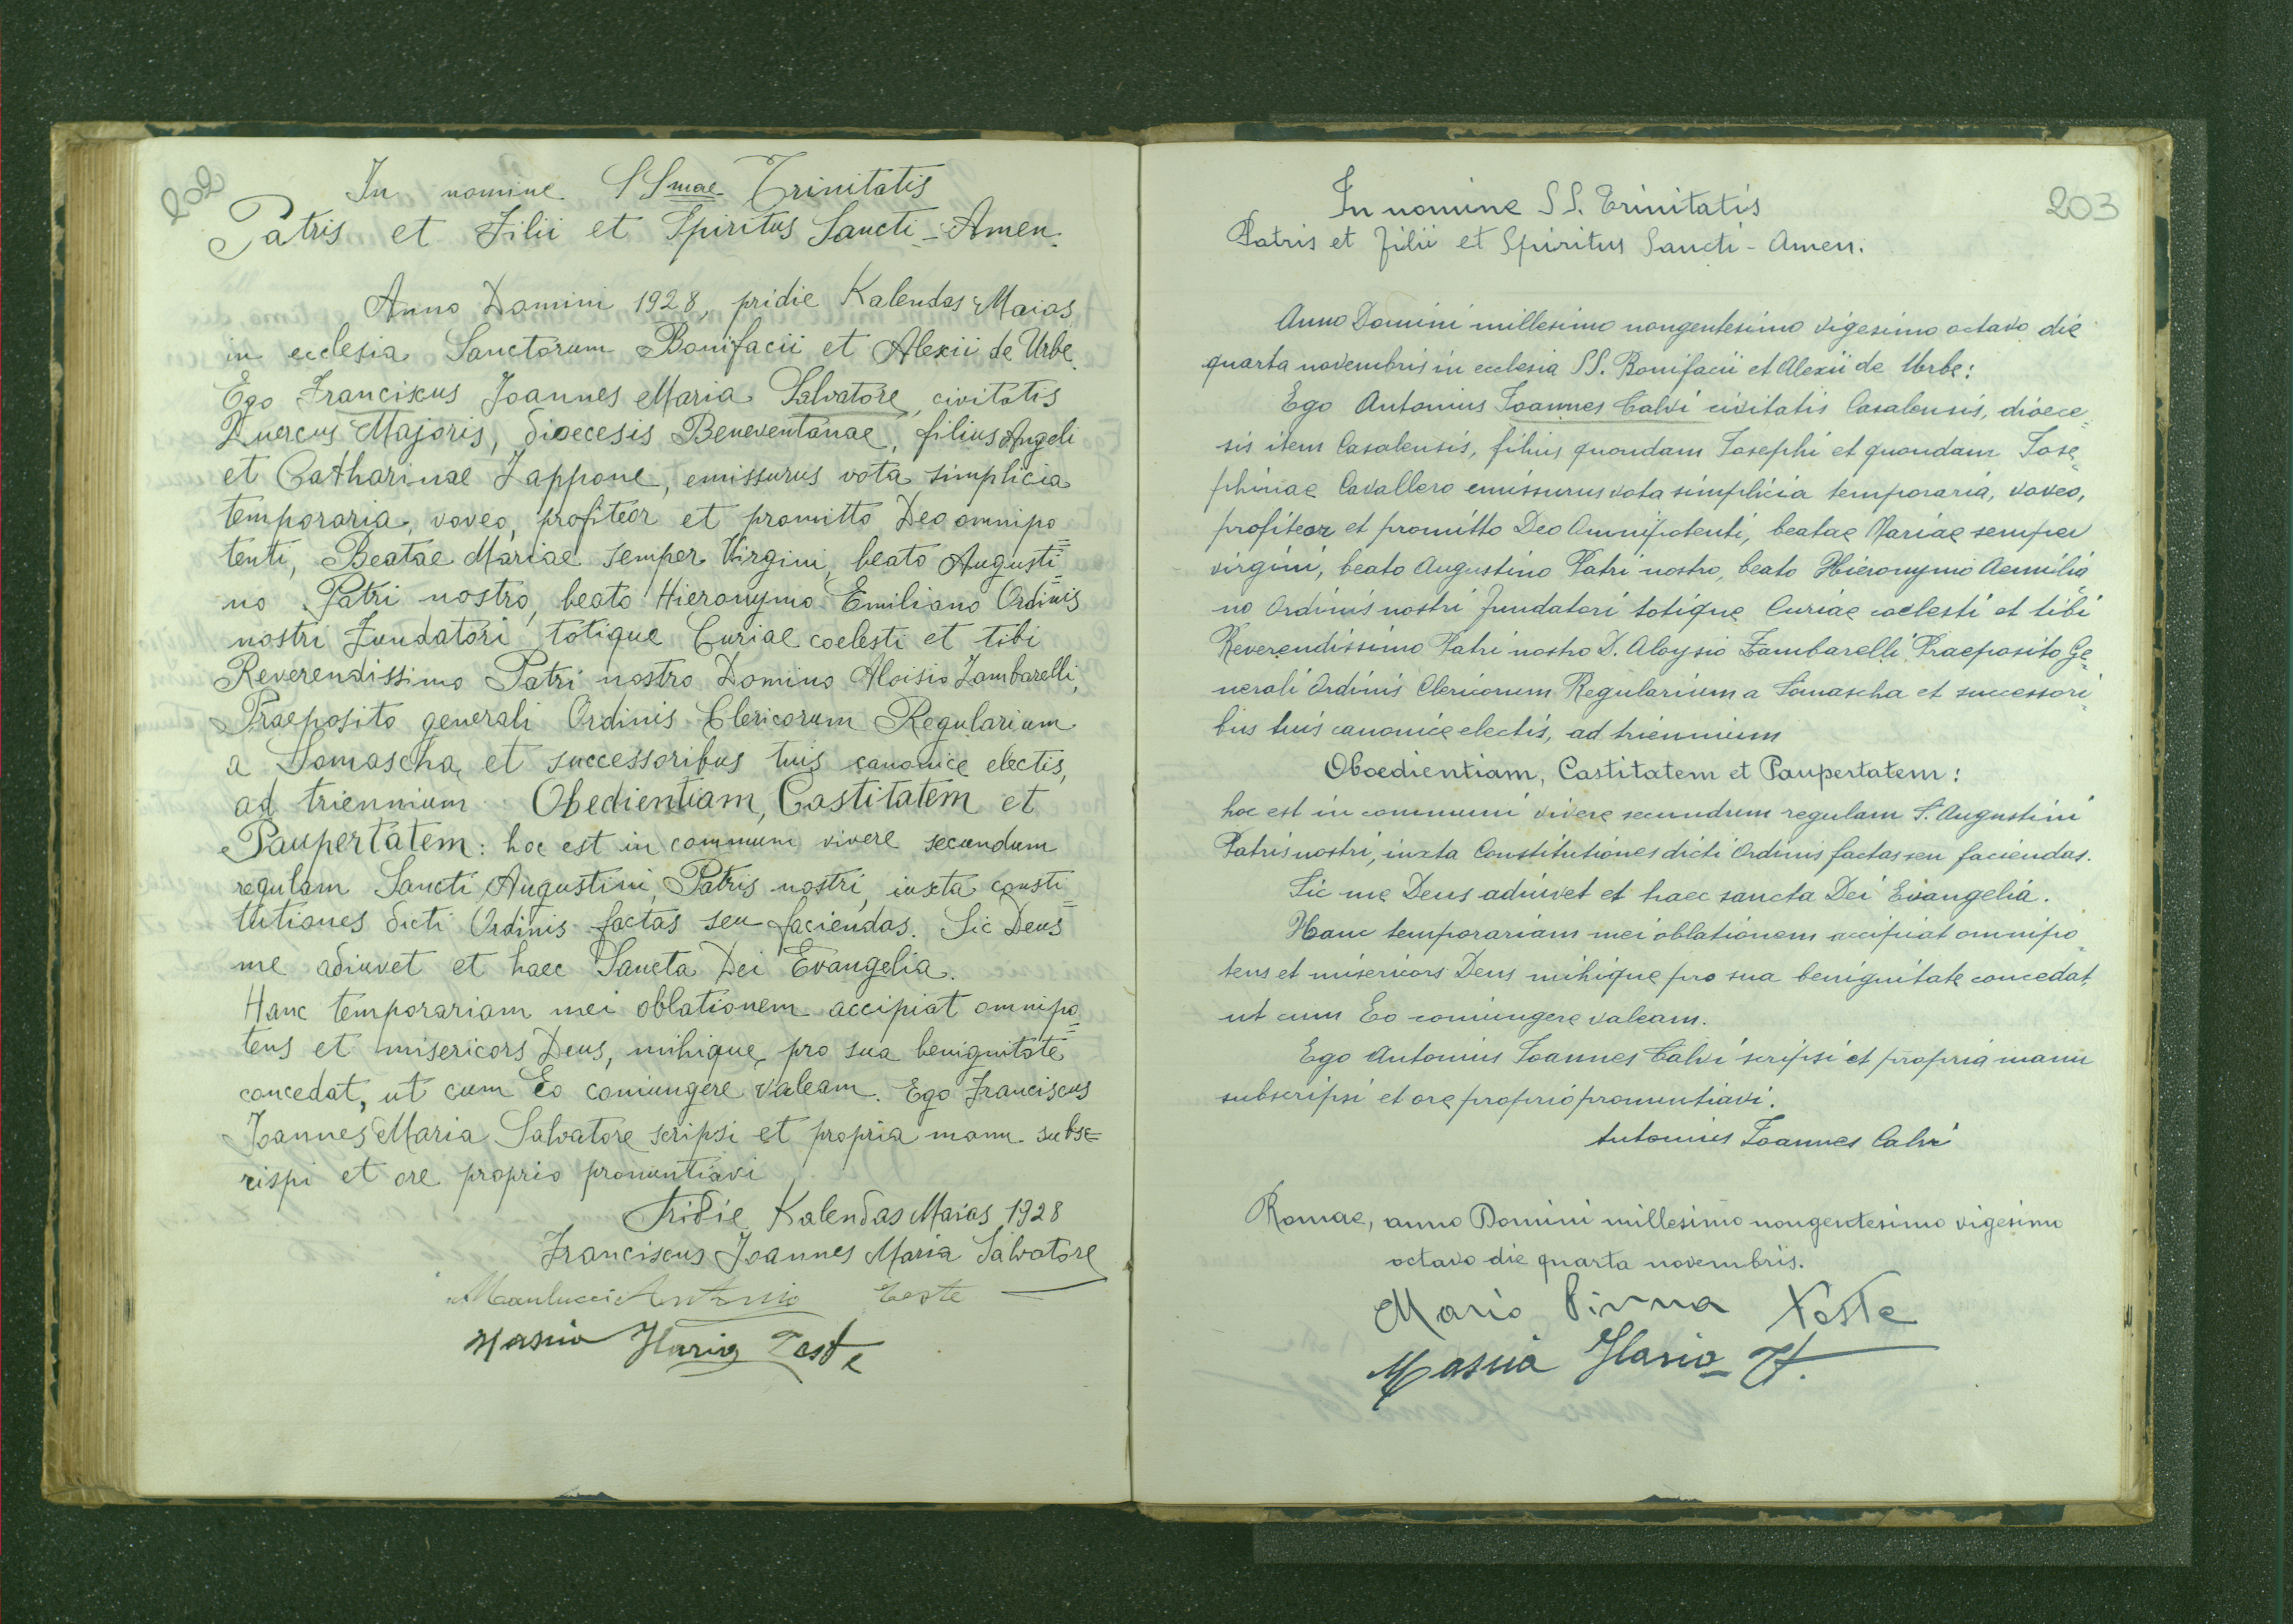 202
In nomine SSmae Trinitatis
Patris et Filii et Spiritus Sancti - Amen.
Anno Domini 1928, pridie Kalendas Maias
in ecclesia Sanctorum Bonifacii et Alexii de Urbe.
Ego Franciscus Joannes Maria Salvatore, civitatis
Quercus Majoris, dioecesis Beneventanae, filius Angeli
et Catharinae Zappone, emissurus vota simplicia
temporaria, voveo, profiteor et promitto Deo omnipo
tenti, Beatae Mariae semper Virgini, beato Augusti=
no Patri nostro, beato Hieronymo Emiliano Ordinis
nostri Fundatori totique Curiae coelesti et tibi
Reverendissimo Patri nostro Domino Aloisio Zambarelli,
Praeposito generali Ordinis Clericorum Regularium
a Somascha et successoribus tuis canonice electis,
ad triennium Obedientiam, Castitatem et
Paupertatem: hoc est in communi vivere secundum
regulam Sancti Augustini, Patris nostri, iuxta consti=
tutiones dicti Ordinis factas seu faciendas. Sic Deus
me adiuvet et haec Sancta Dei Evangelia.
Hanc temporariam mei oblationem accipiat omnipo=
tens et misericors Deus, mihique pro sua benignitate
concedat, ut cum Eo coniungere valeam. Ego Franciscus
Joannes Maria Salvatore scripsi et propria manu subsc=
rispi et ore proprio pronuntiavi
Pridie Kalendas Maias 1928
Franciscus Joannes Maria Salvatore
Manlucci Antonio Teste
Masnia Ilario Teste
203
In nomine SS. Trinitatis
Patris et Filii et Spiritus Sancti - Amen.
Anno Domini millesimo nongentesimo vigesimo octavo die
quarta novembris in ecclesia SS. Bonifacii et Alexii de Urbe:
Ego Antonius Ioannes Calvi civitatis Casalensis, dioece
sis item Casalensis, filius quondam Iosephi et quondam Iose
phinae Cavallero emissurus vota simplicia temporaria, voveo,
profiteor et promitto Deo Omnipotenti, beatae Mariae semper
virgini, beato Augustino Patri nostro, beato Hieronymo Aemilia
no Ordinis nostri fundatori totique Curiae coelesti et tibi
Reverendissimo Patri nostro D. Aloysio Zambarelli Praeposito Ge
nerali Ordinis Clericorum Regularium a Somascha et successori
bus tuis canonice electis, ad triennium
Oboedientiam, Castitatem et Paupertatem:
hoc est in communi vivere secundum regulam S. Augustini
Patris nostri, iuxta Constitutiones dicti Ordinis factas seu faciendas.
Sic me Deus adiuvet et haec sancta Dei Evangelia.
Hanc temporariam mei oblationem accipiat omnipo
tens et misericors Deus mihique pro sua benignitate concedat,
ut cum Eo coniungere valeam.
Ego Antonius Ioannes Calvi scripsi et propria manu
subscripsi et ore proprio pronuntiavi.
Antonius Ioannes Calvi
Romae, anno Domini millesimo nongentesimo vigesimo
octavo die quarta novembris.
Mario Pinna Teste
Masnia Ilario T.